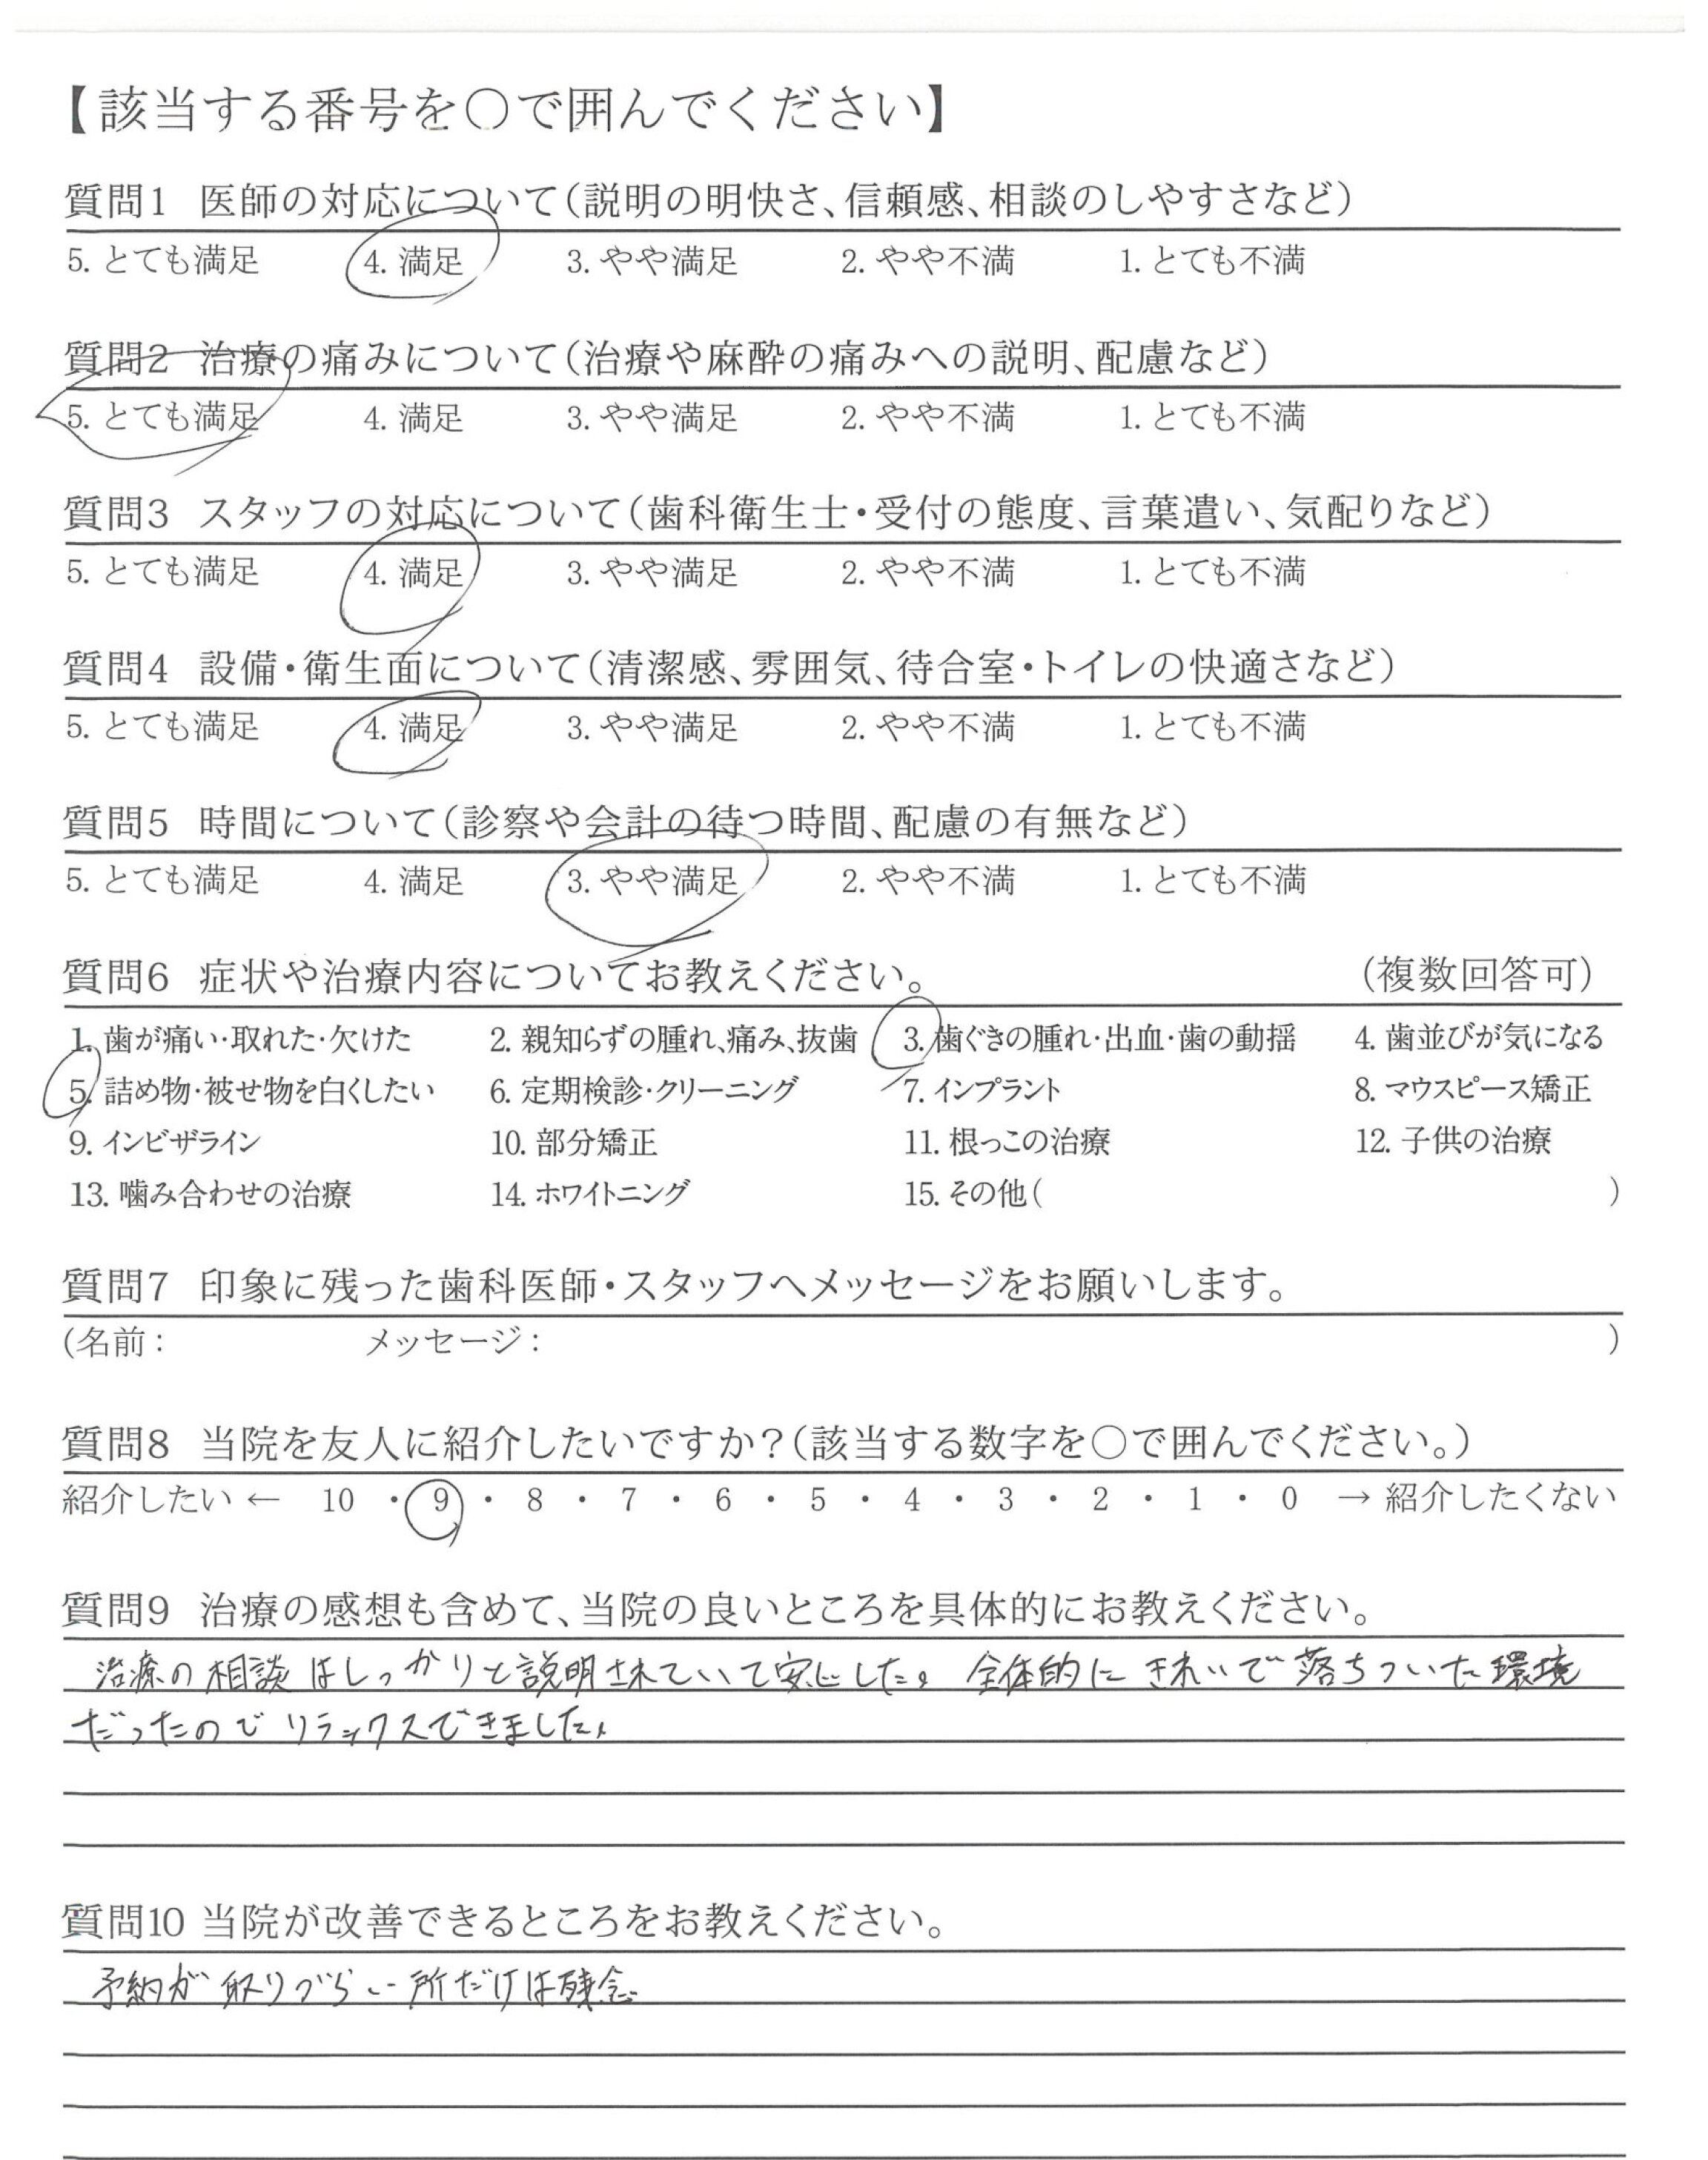 【該当する番号を○で囲んでください】
質問1 医師の対応について(説明の明快さ、信頼感、相談のしやすさなど)
5. とても満足 4. 満足 3. やや満足 2. やや不満 1. とても不満
質問2 治療の痛みについて(治療や麻酔の痛みへの説明、配慮など)
5. とても満足 4. 満足 3. やや満足 2. やや不満 1. とても不満
質問3 スタッフの対応について(歯科衛生士・受付の態度、言葉遣い、気配りなど)
5. とても満足 4. 満足 3. やや満足 2. やや不満 1. とても不満
質問4 設備・衛生面について(清潔感、雰囲気、待合室・トイレの快適さなど)
5. とても満足 4. 満足 3. やや満足 2. やや不満 1. とても不満
質問5 時間について(診察や会計の待つ時間、配慮の有無など)
5. とても満足 4. 満足 3. やや満足 2. やや不満 1. とても不満
質問6 症状や治療内容についてお教えください。 (複数回答可)
1. 歯が痛い・取れた・欠けた 2. 親知らずの腫れ、痛み、抜歯 3. 歯ぐきの腫れ・出血・歯の動揺 4. 歯並びが気になる
5. 詰め物・被せ物を白くしたい 6. 定期検診・クリーニング 7. インプラント 8. マウスピース矯正
9. インビザライン 10. 部分矯正 11. 根っこの治療 12. 子供の治療
13. 噛み合わせの治療 14. ホワイトニング 15. その他( )
質問7 印象に残った歯科医師・スタッフへメッセージをお願いします。
(名前: メッセージ: )
質問8 当院を友人に紹介したいですか?(該当する数字を○で囲んでください。)
紹介したい ← 10 ・ 9 ・ 8 ・ 7 ・ 6 ・ 5 ・ 4 ・ 3 ・ 2 ・ 1 ・ 0 → 紹介したくない
質問9 治療の感想も含めて、当院の良いところを具体的にお教えください。
治療の相談はしっかりと説明されていて安心した。全体的にきれいで落ちついた環境
だったのでリラックスできました。
質問10 当院が改善できるところをお教えください。
予約が取りづらい所だけは残念